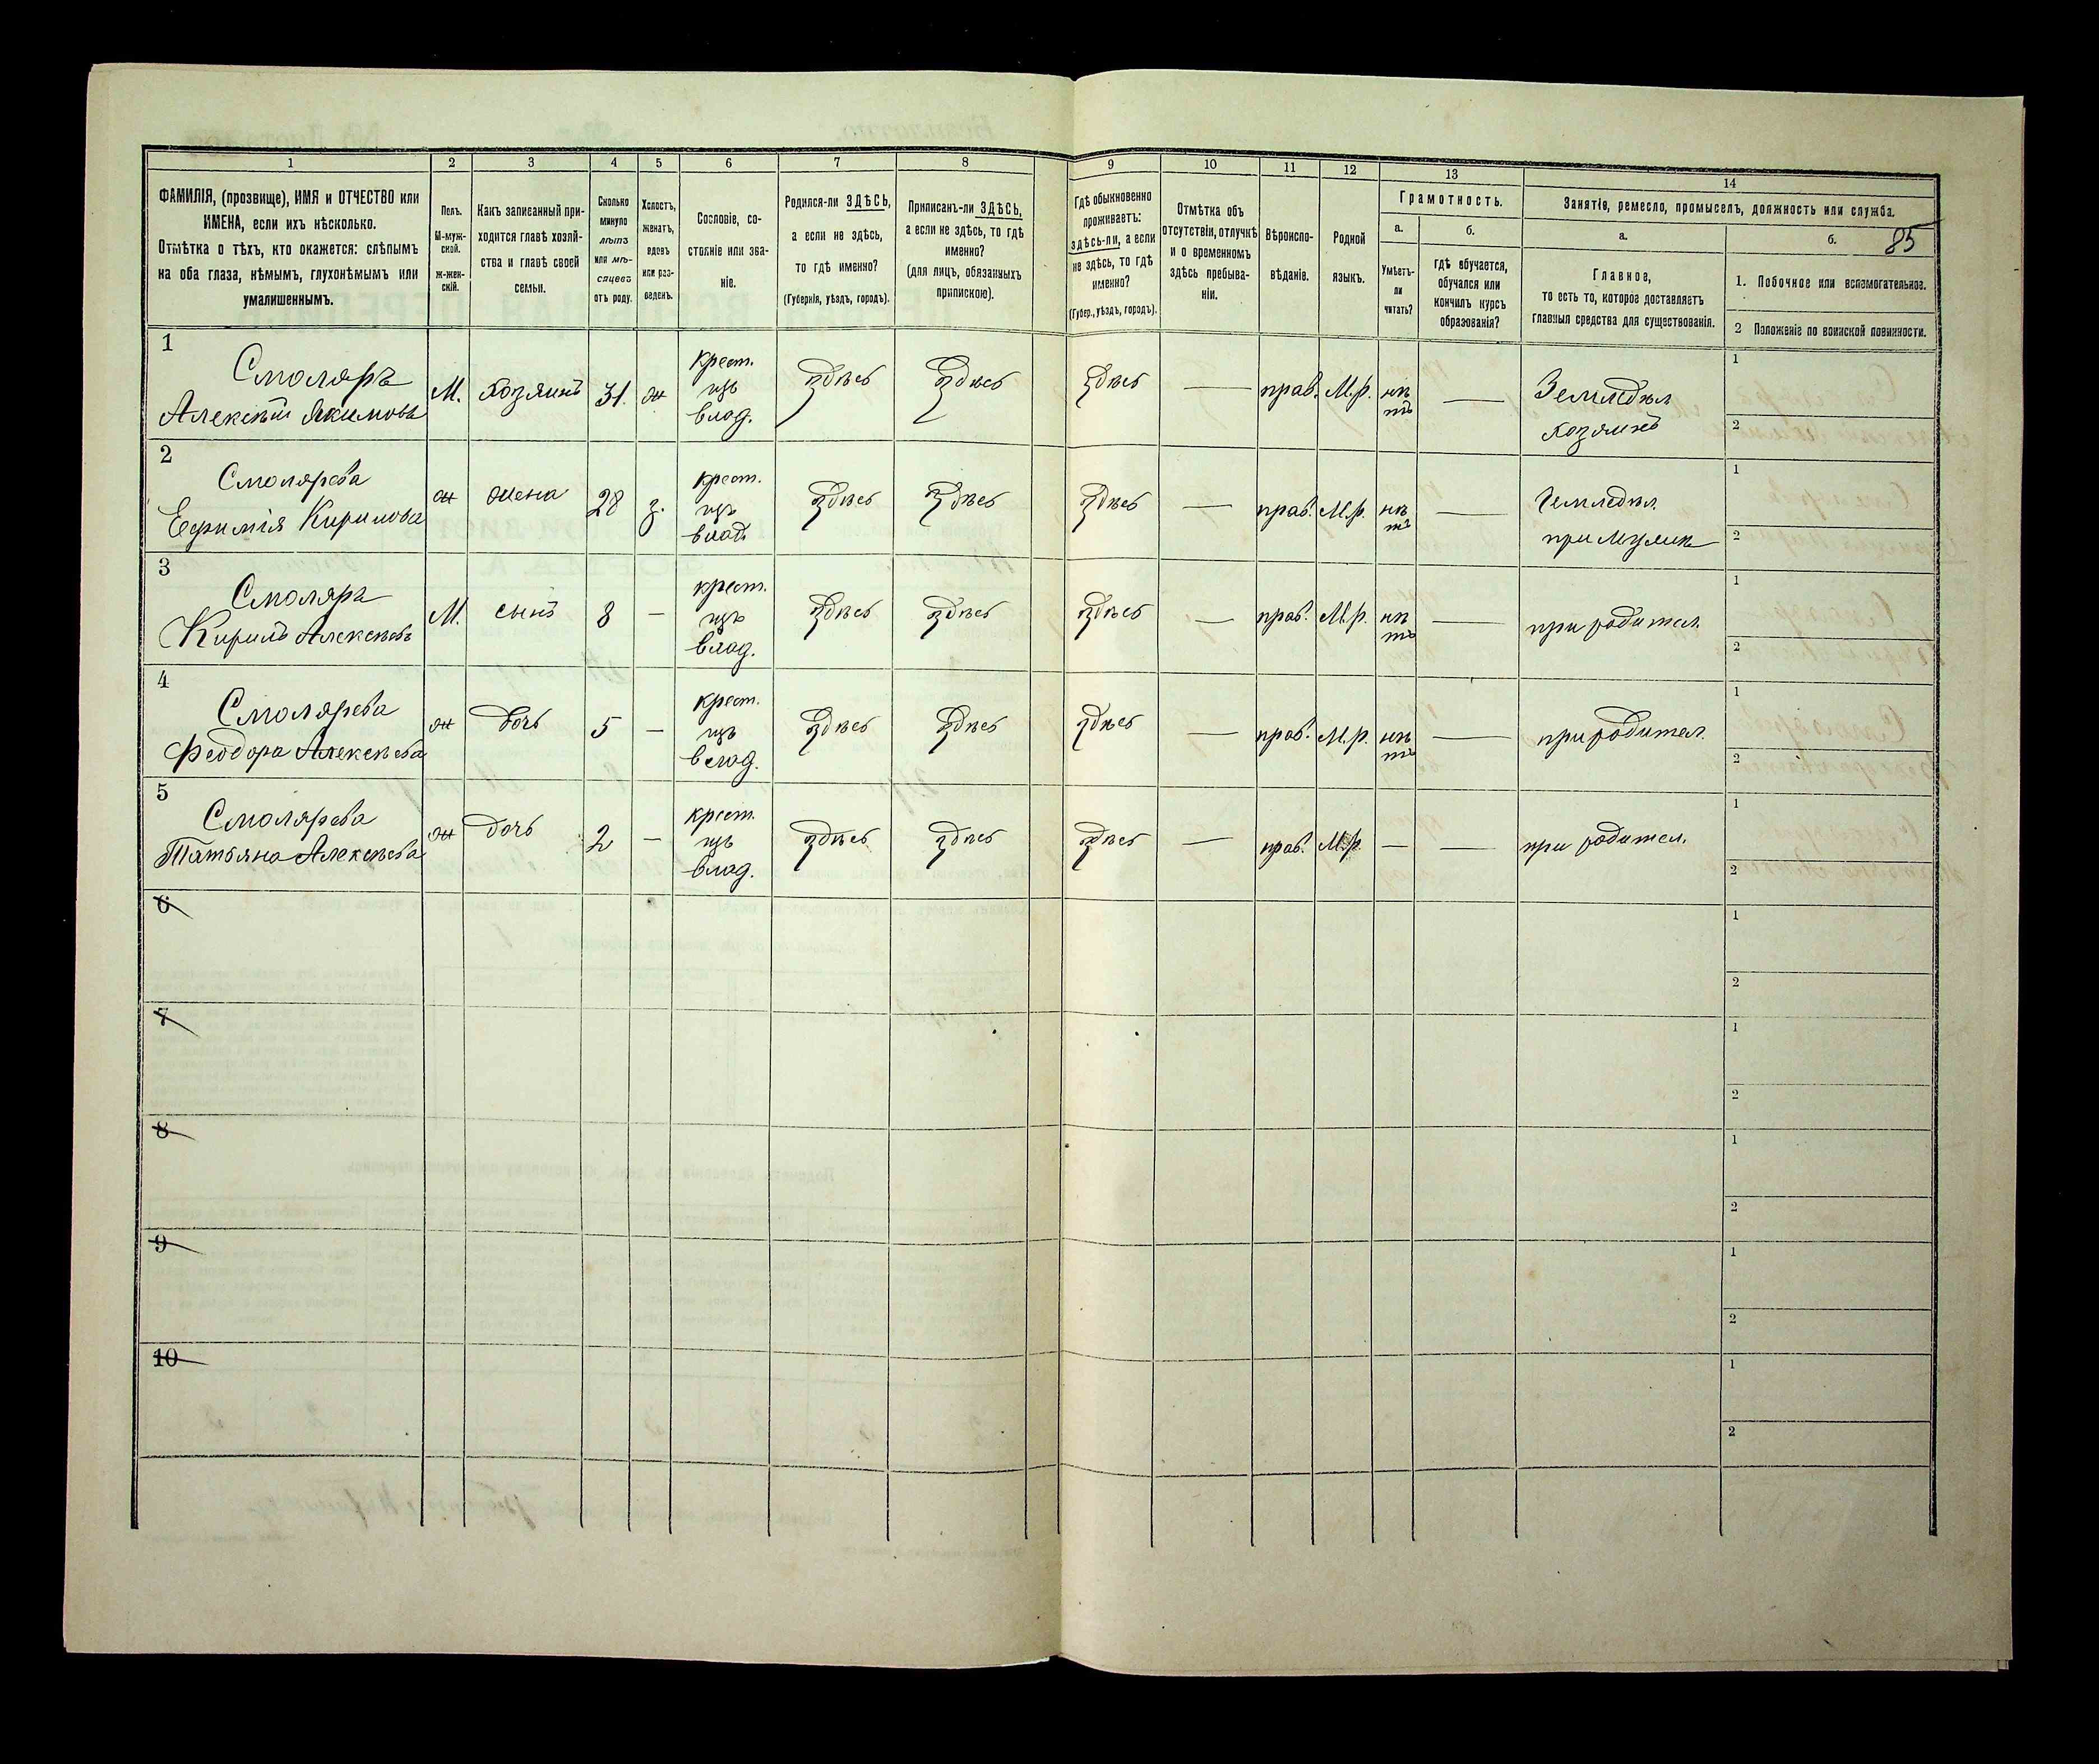 1 2 3 4 5 6 7 8 9 10 11 12 13 14
ФАМИЛІЯ, (прозвище), ИМЯ и ОТЧЕСТВО или
ИМЕНА, если ихъ нѣсколько.
Отмѣтка о тѣхъ, кто окажется: слѣпымъ
на оба глаза, нѣмымъ, глухонѣмымъ или
умалишеннымъ.
Полъ.
М-муж-
ской.
ж-жен-
скій.
Какъ записанный при-
ходится главѣ хозяй-
ства и главѣ своей
семьи.
Сколько
минуло
лѣтъ
или мѣ-
сяцевъ
отъ роду.
Холостъ,
женатъ,
вдовъ
или раз-
веденъ.
Сословіе, со-
стояніе или зва-
ніе.
Родился-ли ЗДѢСЬ,
а если не здѣсь,
то гдѣ именно?
(Губернія, уѣздъ, городъ).
Приписанъ-ли ЗДѢСЬ,
а если не здѣсь, то гдѣ
именно?
(для лицъ, обязанныхъ
припискою).
Гдѣ обыкновенно
проживаетъ:
здѣсь-ли, а если
не здѣсь, то гдѣ
именно?
(Губер., уѣздъ, городъ).
Отмѣтка объ
отсутствіи, отлучкѣ
и о временномъ
здѣсь пребыва-
ніи.
Вѣроиспо-
вѣданіе.
Родной
языкъ.
Грамотность.
а.
Умѣетъ-
ли
читать?
б.
гдѣ обучается,
обучался или
кончилъ курсъ
образованія?
Занятіе, ремесло, промыселъ, должность или служба.
а.
Главное,
то есть то, которое доставляетъ
главныя средства для существованія.
б. 85
1. Побочное или вспомогательное.
2 Положеніе по воинской повинности.
1
Смоляръ
Алексѣй Якимовъ
М. хозяинъ 31. ж
крест.
изъ
влад.
здѣсь здѣсь здѣсь — прав. М.р.
нѣ
тъ
—
Земледѣл
хозяинъ
1
2
2
Смолярева
Ефимія Кирилова
ж жена 28 з.
крест.
изъ
влад.
здѣсь здѣсь здѣсь — прав. М.р.
нѣ
тъ
—
Земледѣл.
при мужѣ
1
2
3
Смоляръ
Кирилъ Алексѣевъ
М. сынъ 8 —
крест.
изъ
влад.
здѣсь здѣсь здѣсь — прав. М.р.
нѣ
тъ
—
при родител.
1
2
4
Смолярева
Феодора Алексѣева
ж дочь 5 —
крест.
изъ
влад.
здѣсь здѣсь здѣсь — прав. М.р.
нѣ
тъ
—
при родител.
1
2
5
Смолярева
Татьяна Алексѣева
ж дочь 2 —
крест.
изъ
влад.
здѣсь здѣсь здѣсь — прав. М.р. — —
при родител.
1
2
6
1
2
7
1
2
8
1
2
9
1
2
10
1
2